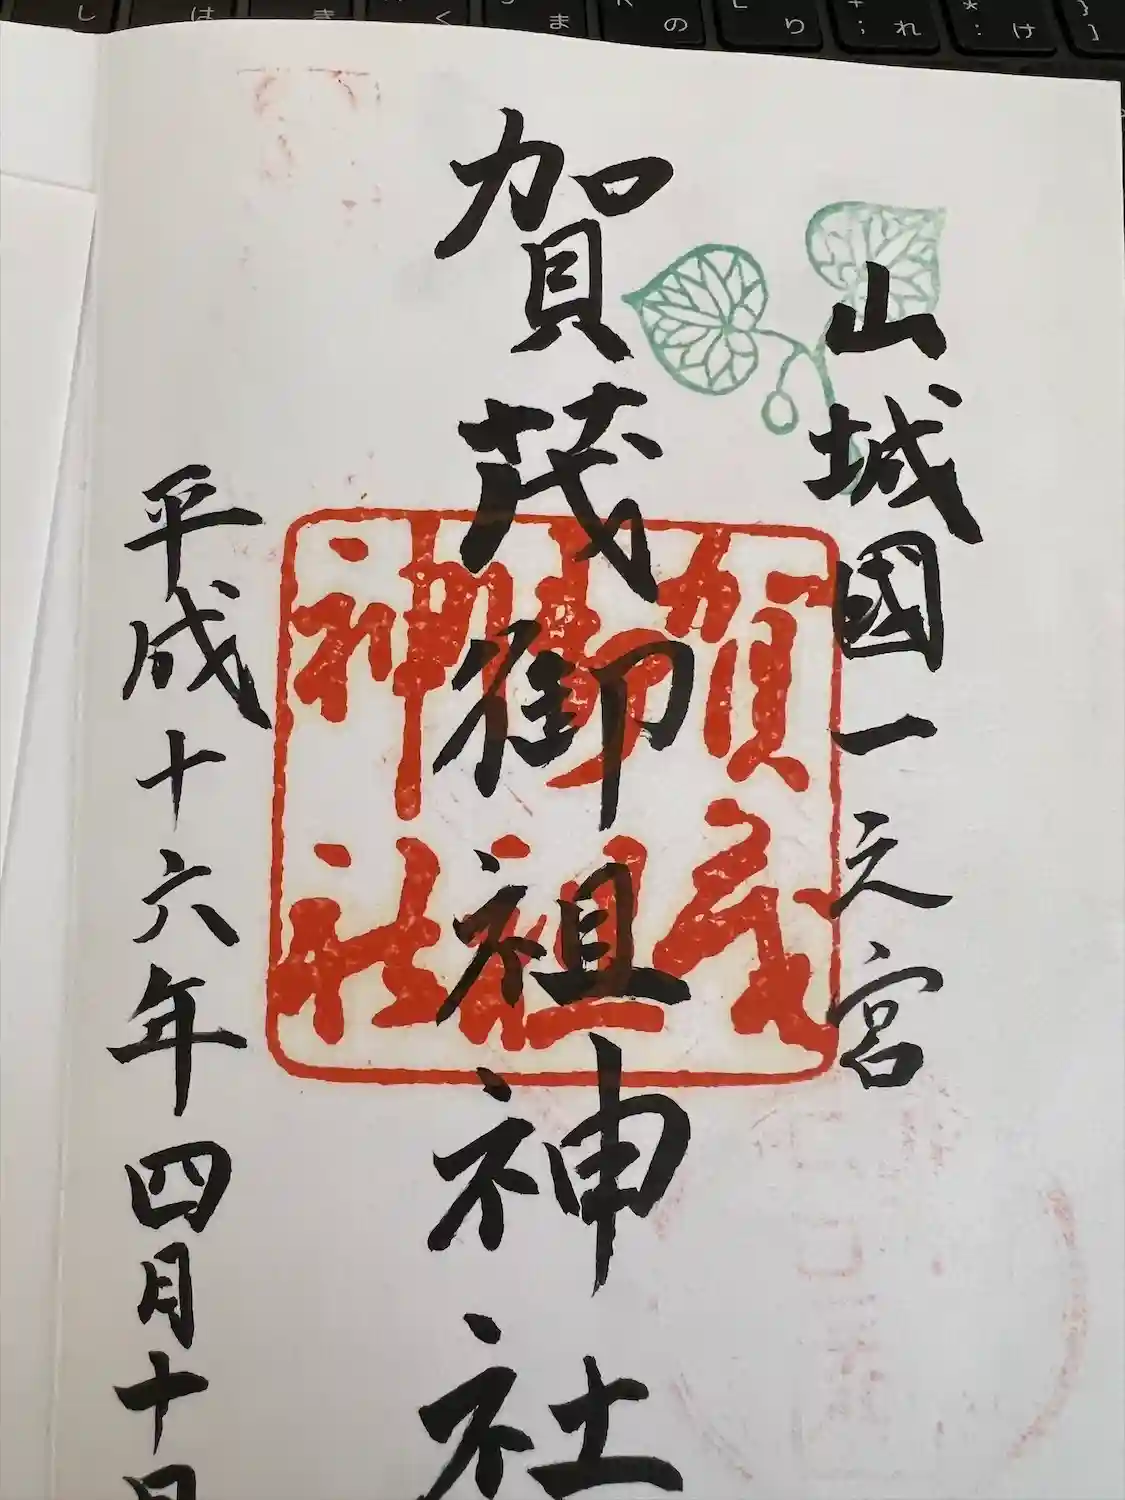 山城國一之宮
賀茂御祖神社
平成十六年四月十日
賀茂
御祖
神社
し
は
き
く
ま
の
り
; れ
* : け
} ]